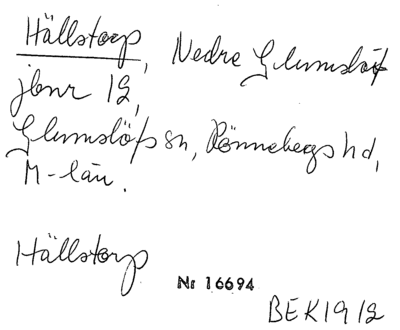 Hällstorp, Nedre Glumslöf
jbnr 12,
Glumslöfs sn, Rönnebergs hd,
M-län.
Hällstorp
Nr 16694
BEK 1912